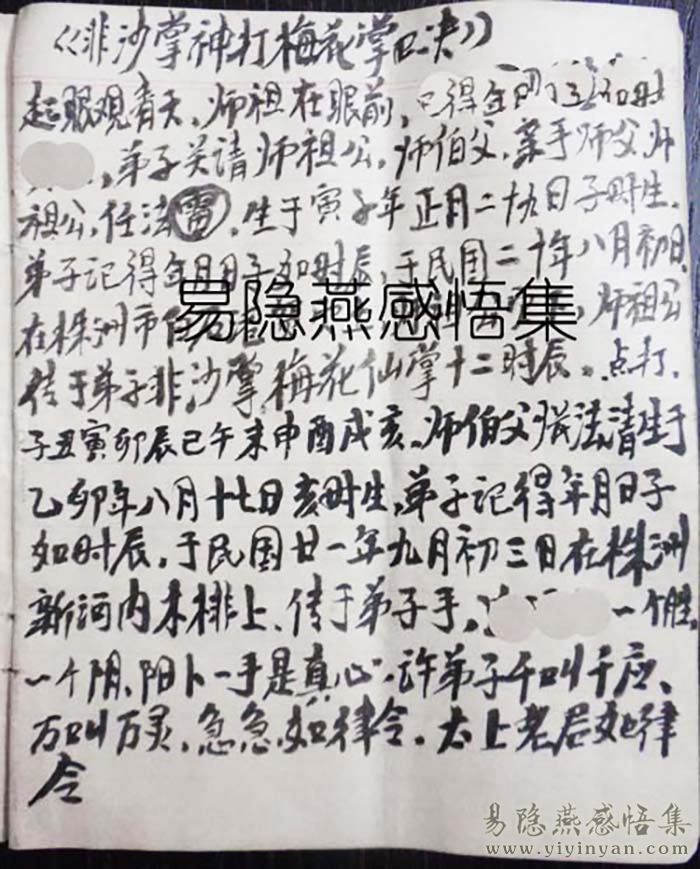 《非沙掌神打梅花掌口决》
起眼观青天，师祖在眼前，记得年月
弟子关请师祖公，师伯父，亲手师父师
祖公，任法雷，生于寅子年正月二十九日子时生，
弟子记得年月日子如时辰，于民国二十年八月初日
在株洲市 师祖公
传于弟子非沙掌梅花仙掌十二时辰。点打，
子丑寅卯辰巳午未申酉戌亥。师伯父 法清生于
乙卯年八月十七日亥时生，弟子记得年月日子
如时辰，于民国廿一年九月初三日在株洲
新河内木排上、传于弟子手， 一个胜。
一个阴、阳卜一手是真心，许弟子千叫千应、
万叫万灵，急急如律令。太上老君如律
令
易隐燕感悟集
易隐燕感悟集
www.yiyinyan.com